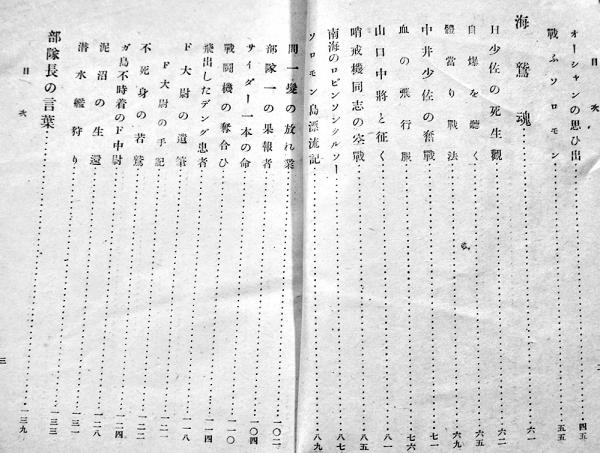 オーシャンの思ひ出……四五
戰ふソロモン……五五
海鷲魂……六一
H少佐の死生觀……六二
自爆を聽く……六五
體當り戰法……六九
中井少佐の奮戰……七一
血の飛行服……七六
山口中將と征く……八一
哨戒機同志の空戰……八五
南海のロビンソンクルソー……八七
ソロモン島漂流記……八九
目次
間一髮の放れ業……一〇二
部隊一の果報者
サイダー一本の命……一〇四
戰鬪機の奪合ひ……一一〇
飛出したデング患者……一一四
ド大尉の遺筆……一一八
ド大尉の手記
不死身の若鷲……一二二
ガ島不時着のド中尉……一二四
泥沼の生還……一二八
潜水艦狩り……一三一
部隊長の言葉……一三九
目次
三